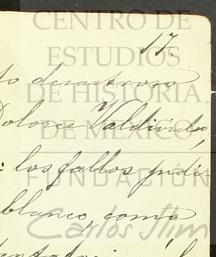 CENTRO DE
17.
ESTUDIOS
to desastroso
DE HISTORIA
Dolores Valdivieso,
DE MÉXICO
: los fallos judi-
FUNDACIÓN
blanco, como
Carlos Slim